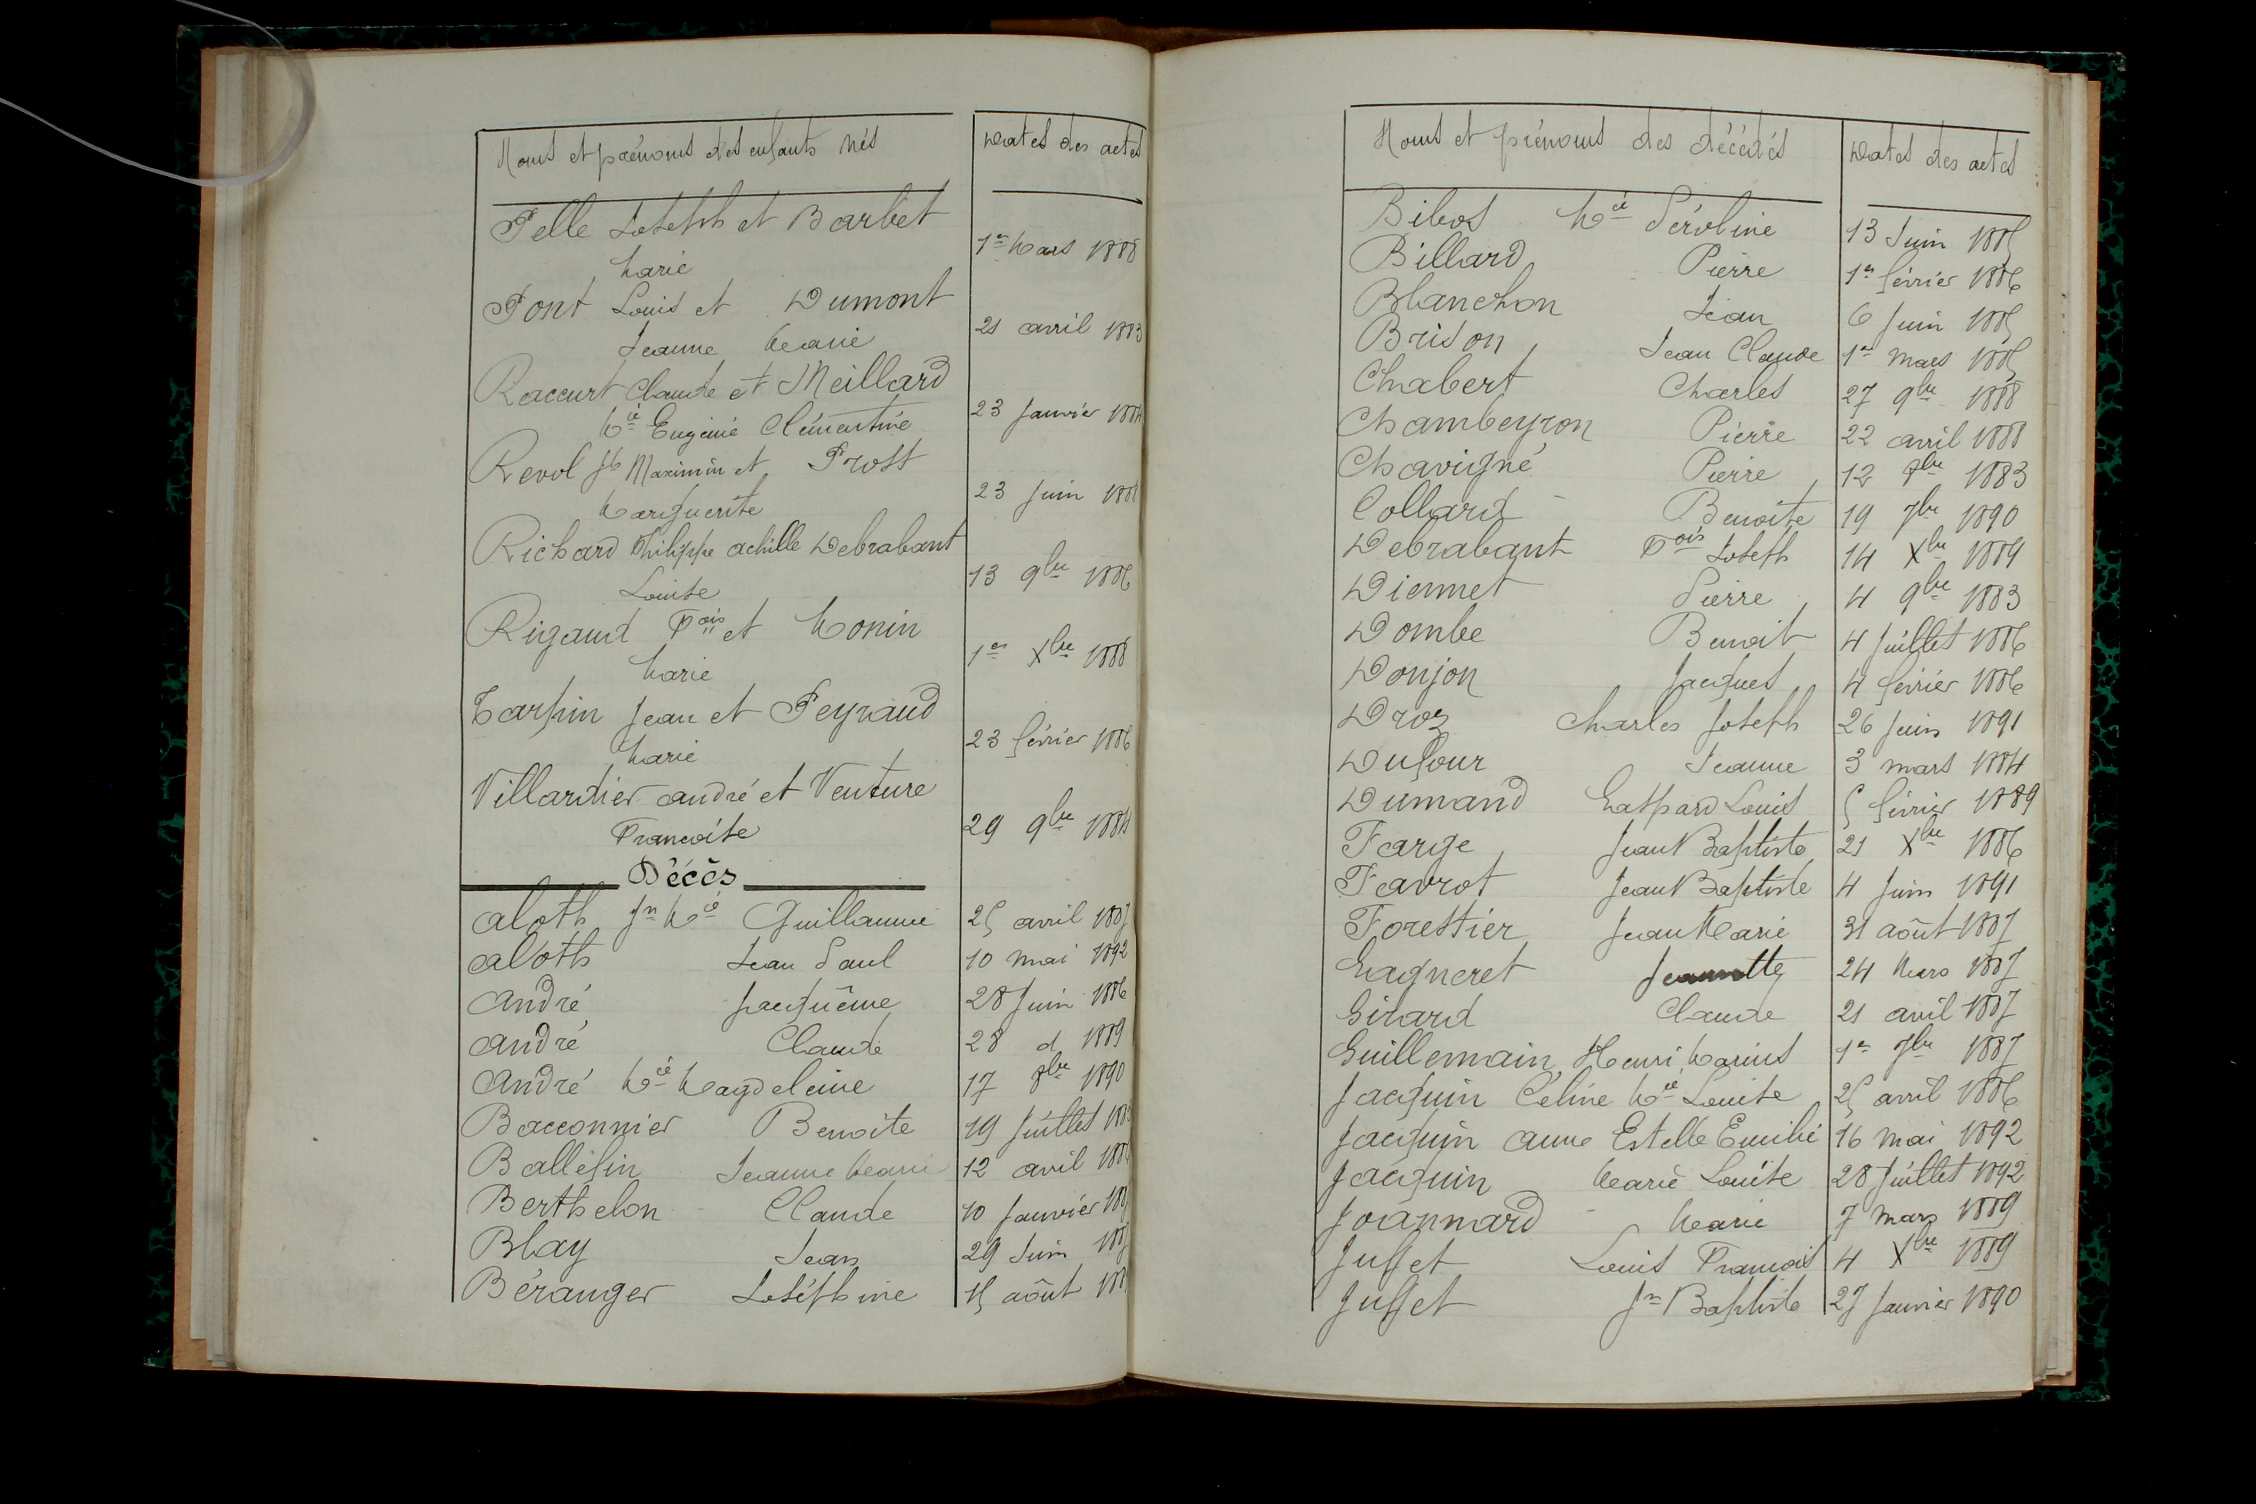 Noms et prénoms des enfants nés
Dates des actes
Pelle Joseph et Barbet
Marie
1er Mars 1888
Pont Louis et Dumont
Jeanne Marie
21 avril 1883
Raccurt Claude et Meillard
Mie Eugénie Clémentine
23 Janvier 1884
Revol Jh Maximin et Prost
Marguerite
23 Juin
Richard Philippe achille Debrabant
Louise
13 9bre 1886
Rigaud Fois et Monin
Marie
1er Xbre 1888
Tarpin Jean et Peyraud
Marie
23 février 1886
Villardier andré et Venture
Francoise
29 9bre 1884
Décès
aloth Jn Mie Guillaume 25 avril 1887
aloth Jean Paul 10 mai 1892
andré Jacquême 28 Juin 1886
andré Claude 28 d 1889
andré Mie Magdeleine 17 8bre 1890
Bacconnier Benoite 19 Juillet
Ballefin Jeanne Marie 12 avril
Berthelon Claude 10 Janvier
Blay Jean 29 Juin
Béranger Joséphine 15 août
Noms et prénoms des décédés
Dates des actes
Bibos Mie Péroline 13 Juin 1885
Billard Pierre 1er février 1886
Blanchon Jean 6 Juin 1885
Brison Jean Claude 1er mars 1885
Chabert Charles 27 9bre 1888
Chambeyron Pierre 22 avril 1888
Chavigné Pierre 12 8bre 1883
Collard Benoite 19 7bre 1890
Debrabant Fois Joseph 14 Xbre 1889
Diennet Pierre 4 9bre 1883
Dombe Benoit 4 Juillet 1886
Donjon Jacques 4 février 1886
Droz Charles Joseph 26 Juin 1891
Dufour Jeanne 3 mars 1884
Dumand Gaspard Louis 5 février 1889
Farge Jean Baptiste 21 Xbre 1886
Favrot Jean Baptiste 4 Juin 1891
Forestier Jean Marie 31 août 1887
Gagneret Jeannette 24 Mars 1887
Girard Claude 21 avril 1887
Guillemain Henri Marius 1er 7bre 1887
Jacquin Céline Mie Louise 25 avril 1886
Jacquin anne Estelle Emilie 16 mai 1892
Jacquin Marie Louise 28 Juillet 1892
Joannard Marie 7 mars 1889
Juffet Louis Francois 4 Xbre 1889
Juffet Jn Baptiste 27 Janvier 1890